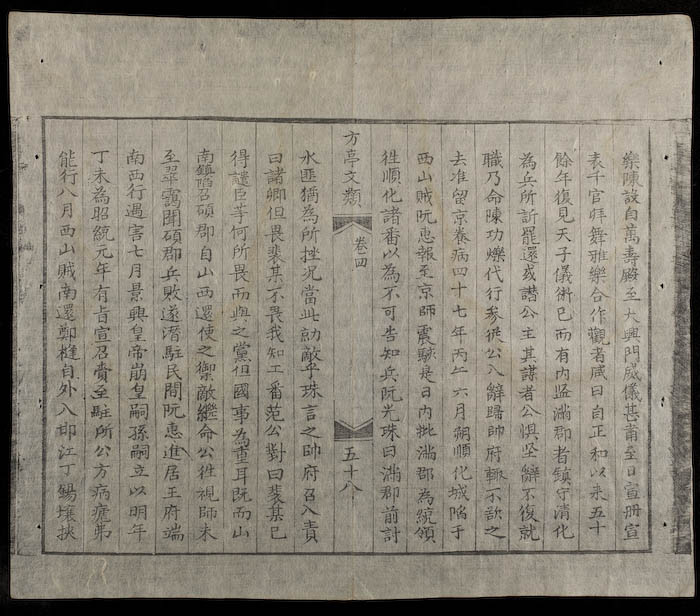 樂陳設自萬壽殿至大興門威儀甚肅至日宣册宣
表千官拜舞雅樂合作觀者咸曰自正和以來五十
餘年復見天子儀術已而有内监滿郡者鎮守清化
為兵所訢罷還或譛公主其謀者公惧坚辭不復就
職乃命陳功爍代行参従公入辭歸帥府輙不敨之
去准留京養病四十七年丙午六月順化城陷于
西山賊阮惠報至京師震駭是日内批滿郡為統領
徃順化諸番以為不可告知兵阮光珠曰滿郡前討
方亭文類
卷四
五十八
水匪猶為所挫况當此勍敵乎珠言之帥府召入責
曰諸卿但畏裴某不畏我知工番范公對曰裴某已
得譴臣等何所畏而與之黨但國事為重耳既而山
南鎮陷召碩郡自山西還使之禦敵繼命公徃視師未
至翠靄聞碩郡兵敗遂潛駐民間阮惠進居王府端
南西行遇害七月景興皇帝崩皇嗣孫嗣立以明年
丁未為昭統元年有旨宣召賫至駐所公方病瘧弗
能行八月西山賊南還鄭槰自外入丁錫壤挾